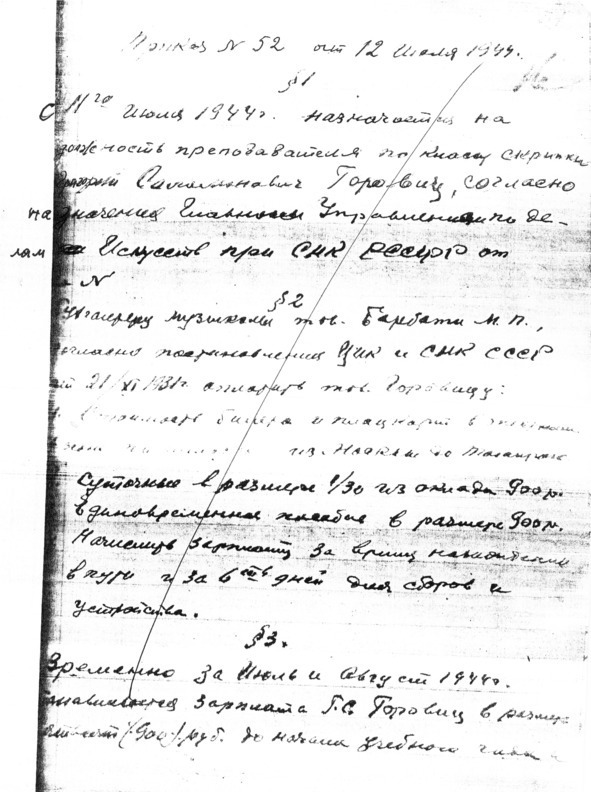 Приказ N 52 от 12 Июля 1944г.
§1
С 11го Июля 1944г. назначается на
должность преподавателя по классу скрипки
Самойлович Горовиц, согласно
назначения Главного Управления по де-
лам Искусств при СНК РССФР от
N
§2
Бухгалтеру музшколы тов. Барбати М.П.,
согласно постановления ЦИК и СНК СССР
от 21/XI 1931г. оплатить тов. Горовицу:
1. Стоимость билета и плацкарт в
из Москвы до
Суточные в размере 1/30 из оклада 900 р.
Единовременное пособие в размере 900 р.
Начислить зарплату за время нахождения
в пути и за 6ть дней для сборов и
устройства.
§3.
Временно за Июль и Август 1944г.
устанавливается зарплата Г.С. Горовиц в размере
(900) руб. до начала учебного года